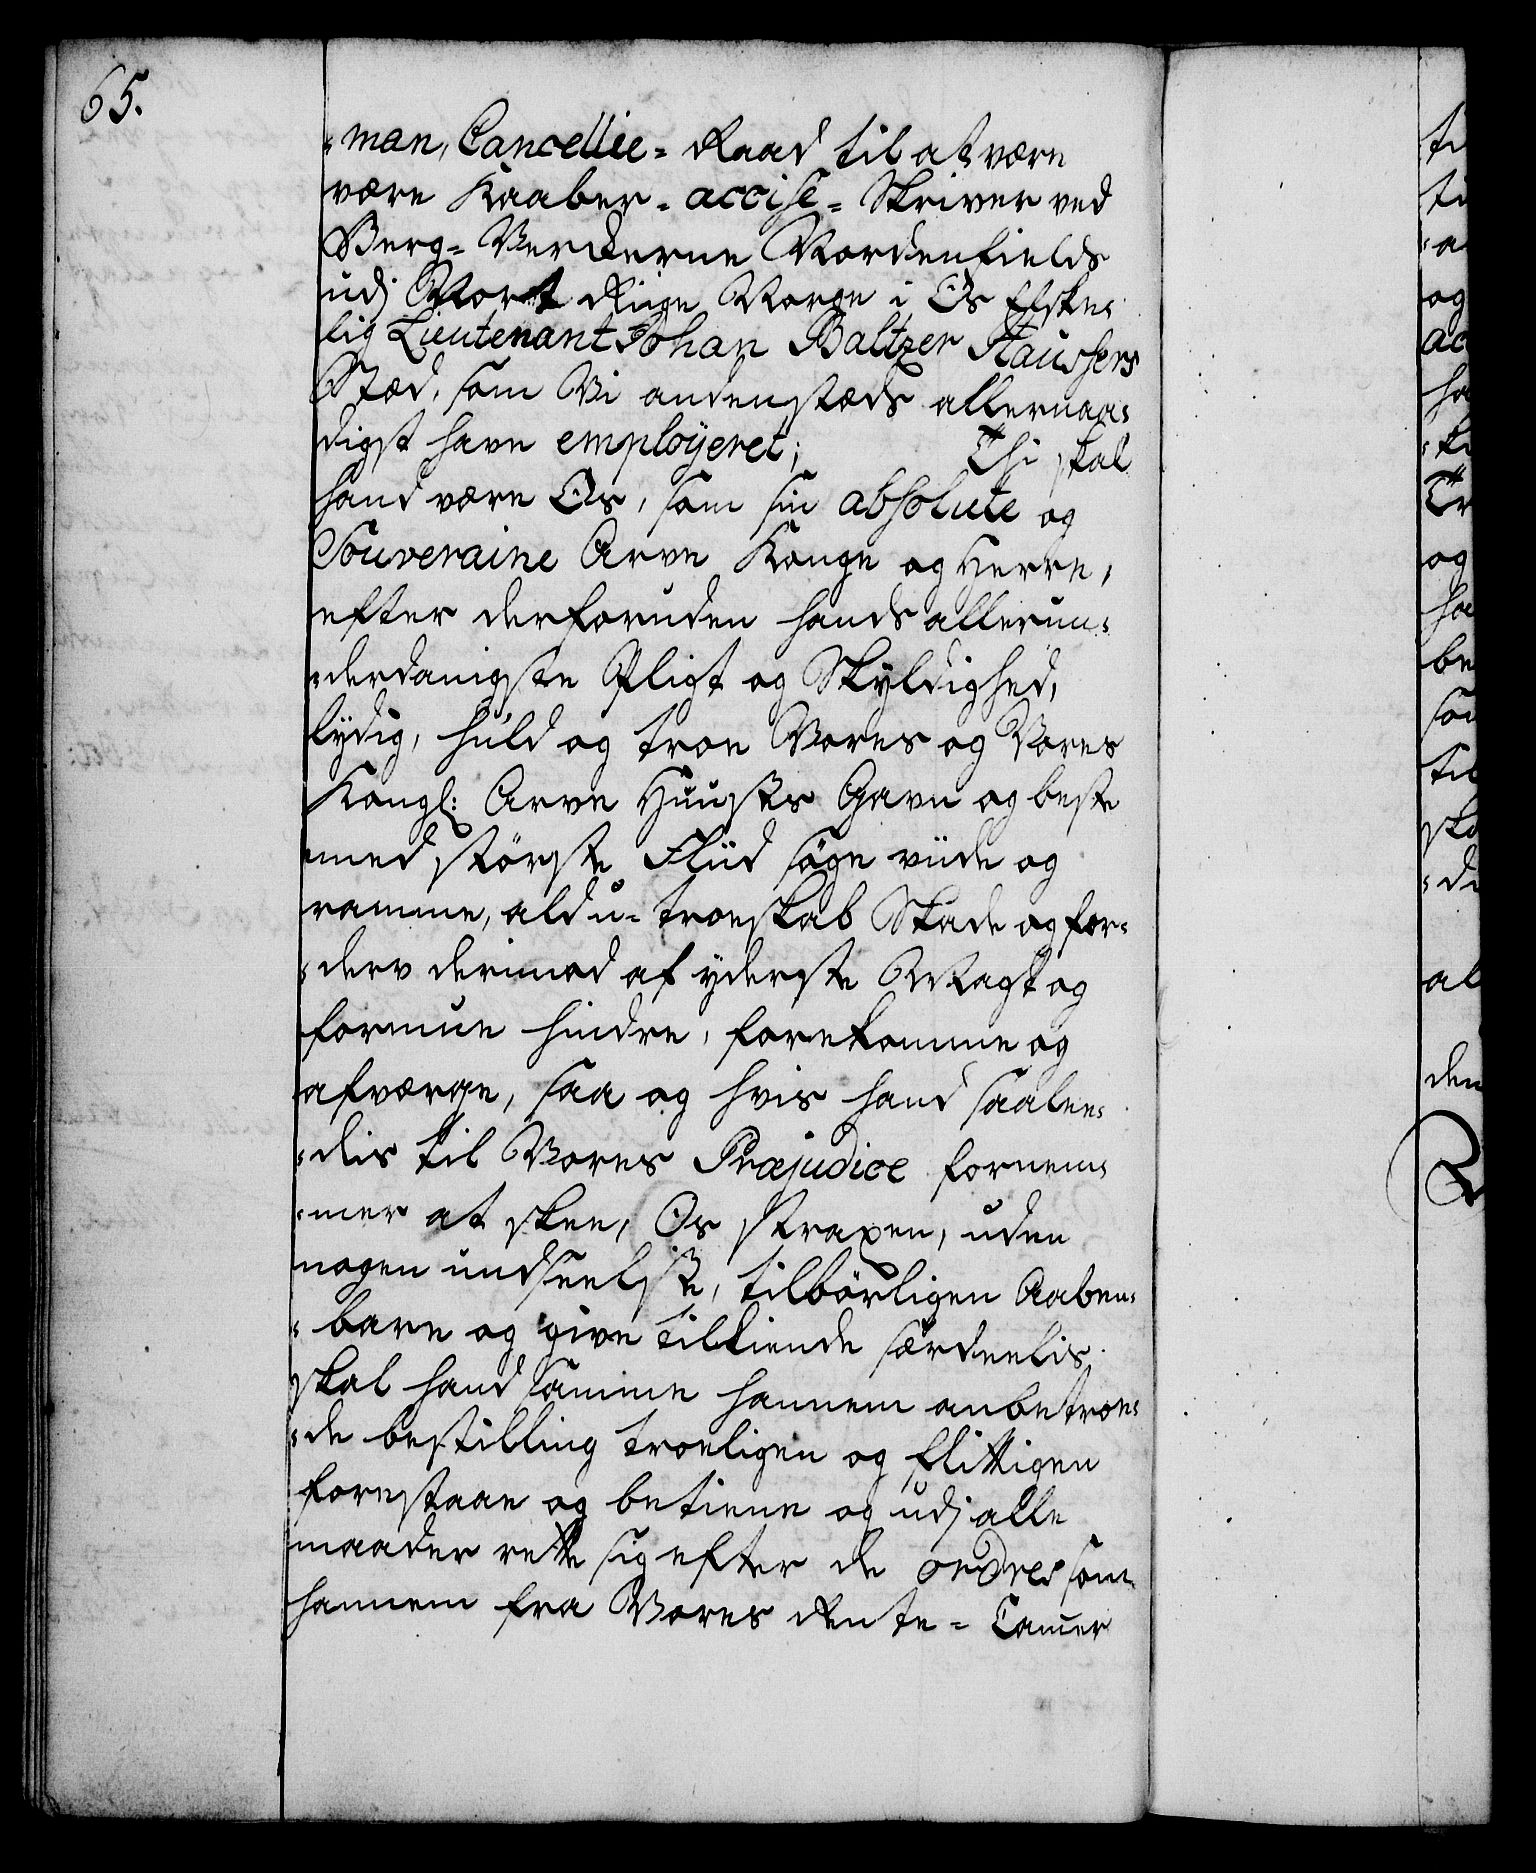 65.
-man, Cancellie-Raad til at være
være Kaaber-accise-Skriver ved
Berg-Verckerne Nordenfields
udj Vort Riige Norge i Os Elske-
lig Lieutenant Johan Baltzer Staussers
Stæd, som Vi andenstæds allernaa-
digst have employeret; Thi skal
hand være Os, som sin absolute og
Souveraine Arve Konge og Herre,
efter derforuden hands allerun-
-derdanigste Pligt og Skyldighed,
lydig, huld og troe Vores og Vores
Kongl: Arve Huuses Gavn og beste
med største Fliid søge viide og
ramme, ald u-troeskab Skade og for-
-derv derimod af yderste Magt og
formue hindre, forekomme og
afværge, saa og hvis hand saalee-
-dis til Vores Præjudice fornem-
-mer at skee, Os straxen, uden
nogen undseelse, tilbørligen Aaben-
-bare og give tilkiende særdeelis
skal hand samme hannem anbetroe-
-de bestilling troeligen og flittigen
forestaae og betiene og udj alle
maader rette sig efter de ordres som
hannem fra Vores Rente-Camer
ti
ti
-a
og
ac
ha
-ke
Tr
og
ha
be
som
til
ska
-de
al
den